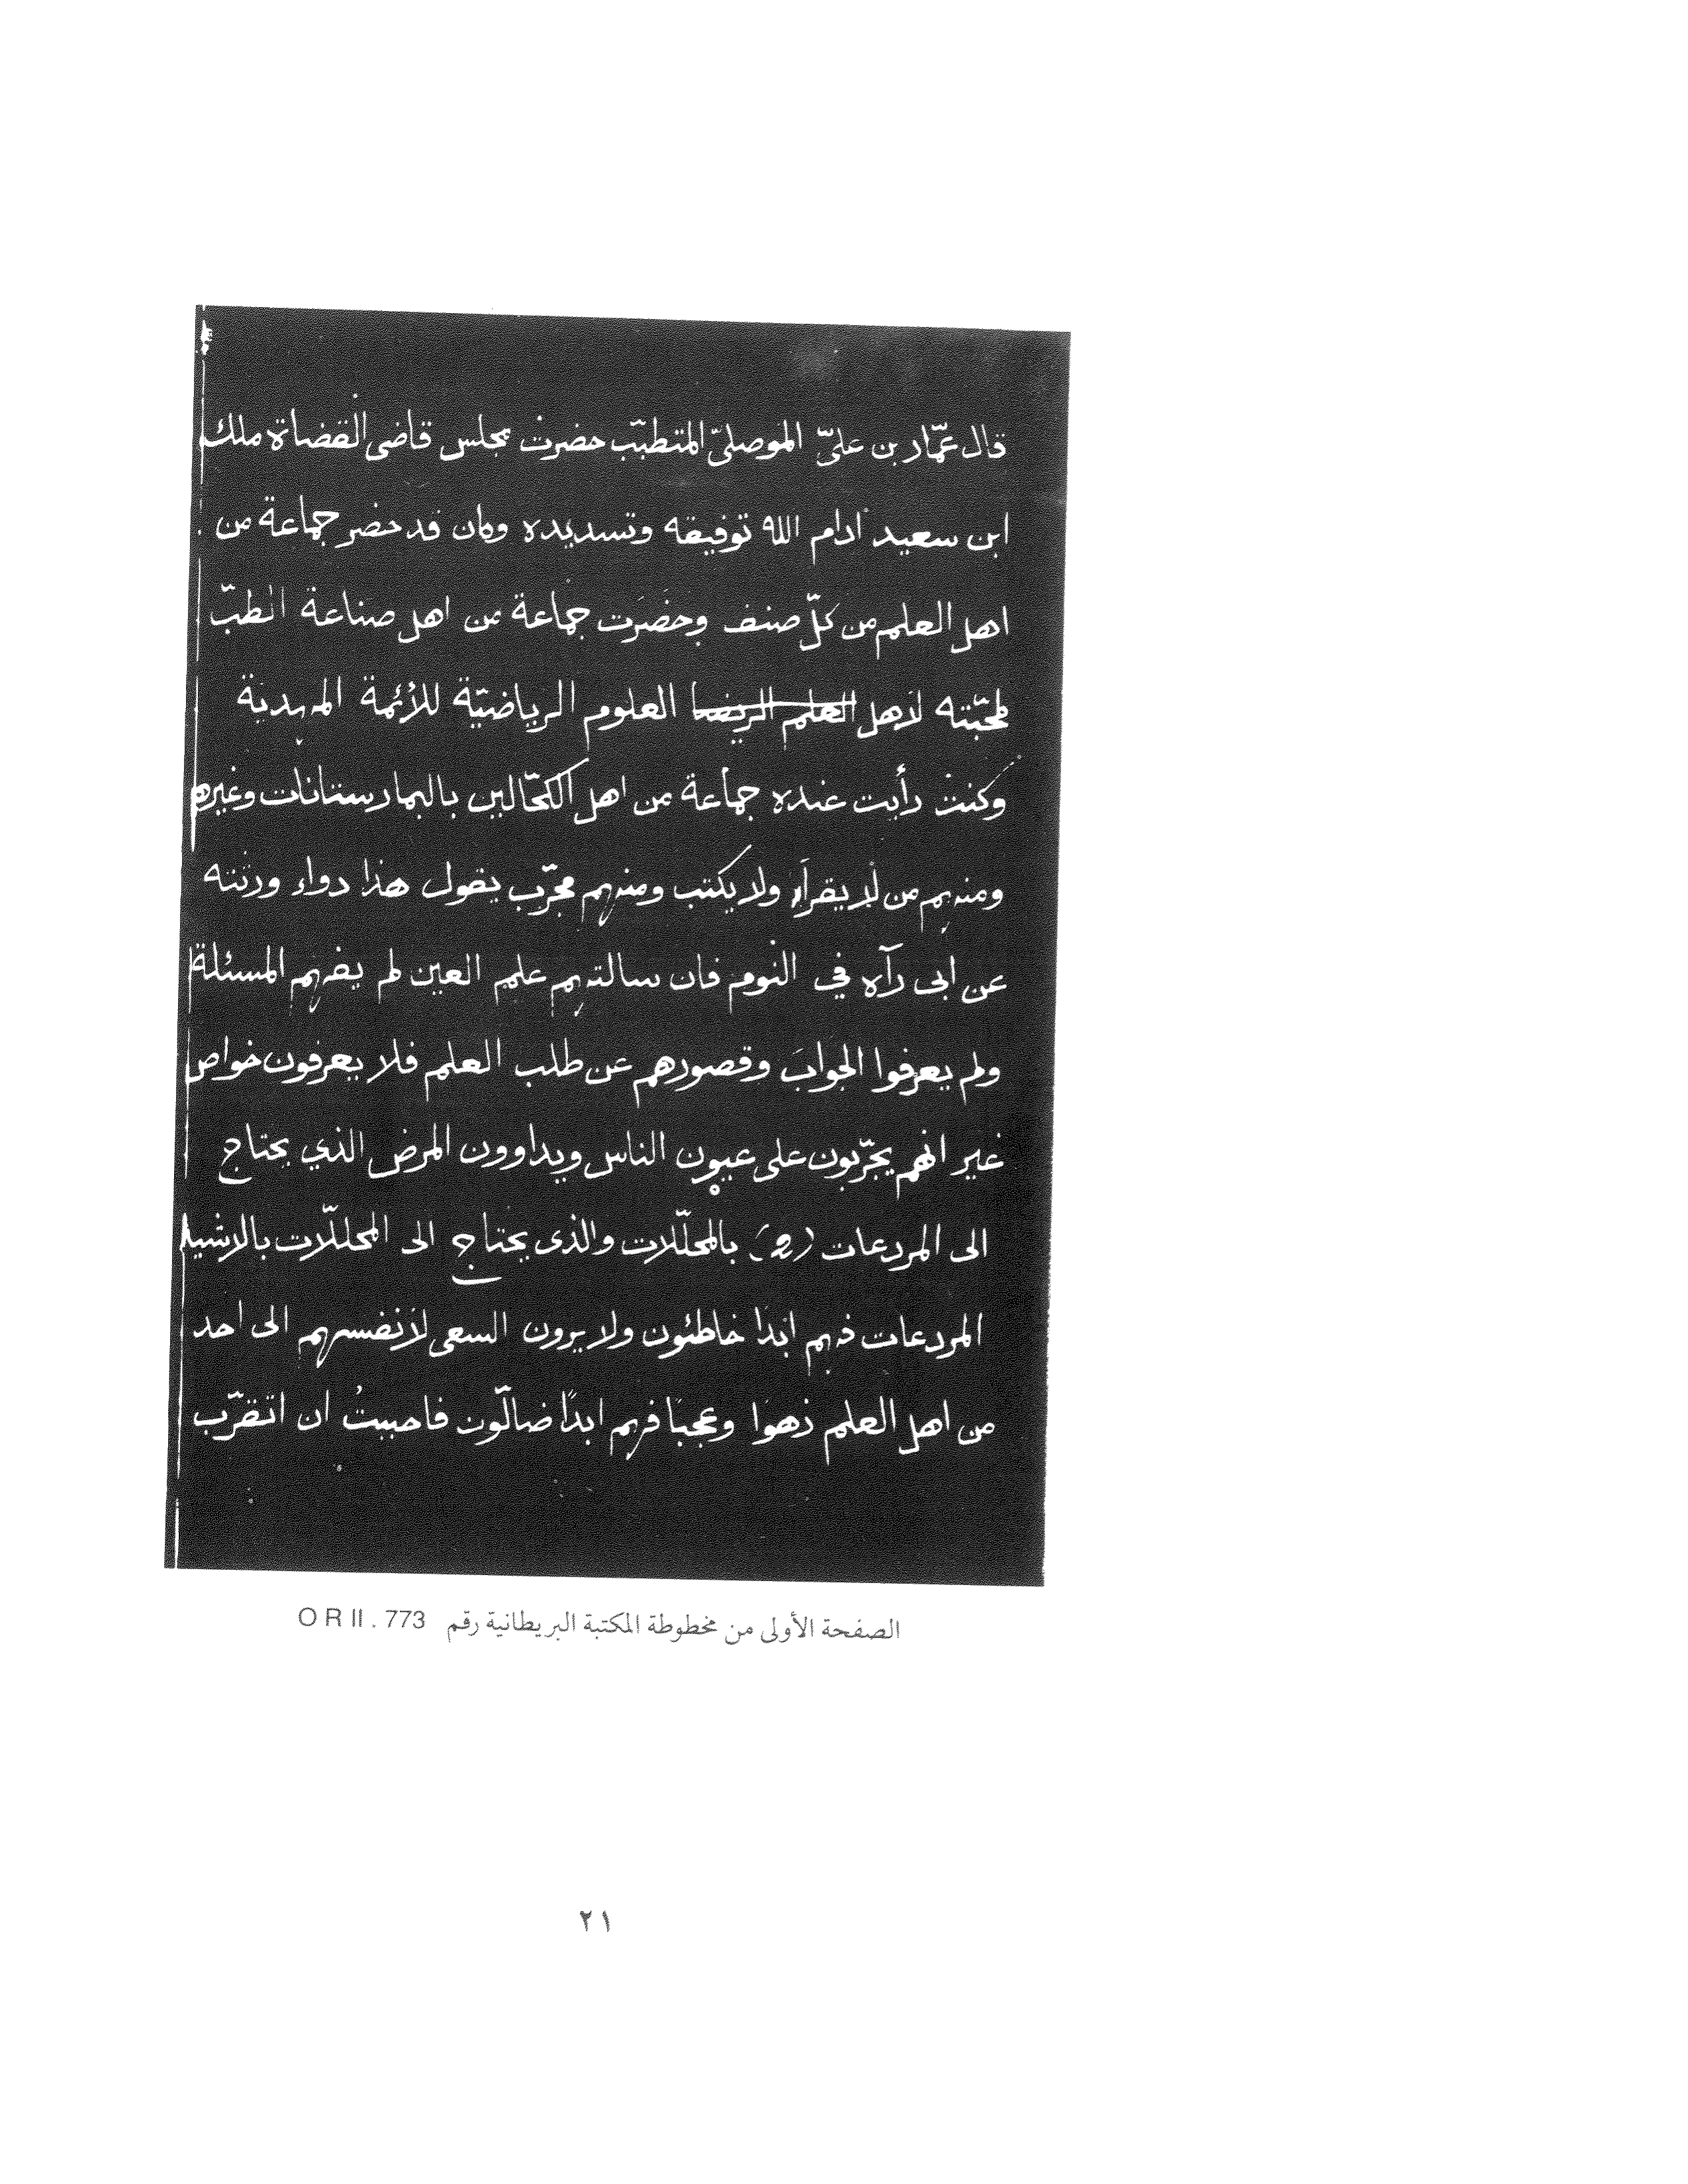 قال عمّار بن علىّ الموصلىّ المتطبّب حضرت مجلس قاضى القضاة ملك
ابن سعيد ادام الله توفيقه وتسديده وكان قد حضر جماعة من
اهل العلم من كلّ صنف وحضرت جماعة من اهل صناعة الطبّ
لمحبّته لاهل العلم الريضيا العلوم الرياضيّة للأئمة المهدية
وكنت رأيت عنده جماعة من اهل الكحّالين بالبمارستانات وغيرهم
ومنهم من لا يقرأ ولا يكتب ومنهم مجرّب يقول هذا دواء ورثته
عن ابى رآه في النوم فان سالتهم علم العين لم يفهم المسئلة
ولم يعرفوا الجواب وقصورهم عن طلب العلم فلا يعرفون خواص
غير انهم يجرّبون على عيون الناس ويداوون المرض الذي يحتاج
الى المردعات بالمحلّلات والذى يحتاج الى المحللّات
المردعات فهم ابدا خاطئون ولا يرون السعى لأنفسهم الى احد
من اهل العلم زهوا وعجبا فهم ابدًا ضالّون فاحببتُ ان اتقرّب
الصفحة الأولى من مخطوطة المكتبة البريطانية رقم O R II . 773
٢١